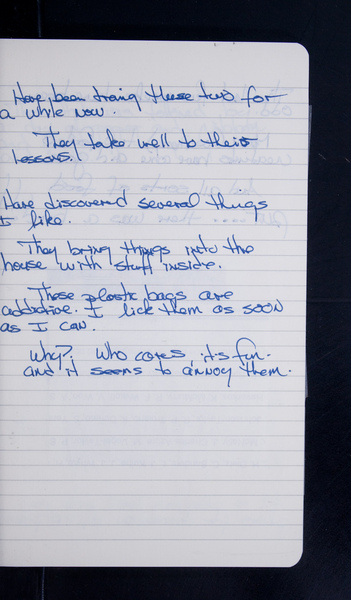 Have been traing these two for
a while now.
They take well to their
lessons!
Have discovered several things
I like.
They bring things into the
house with stuff inside.
These plastic bags are
addictive. I lick them as soon
as I can.
Why? Who cares, it's fun.
and it seems to annoy them.